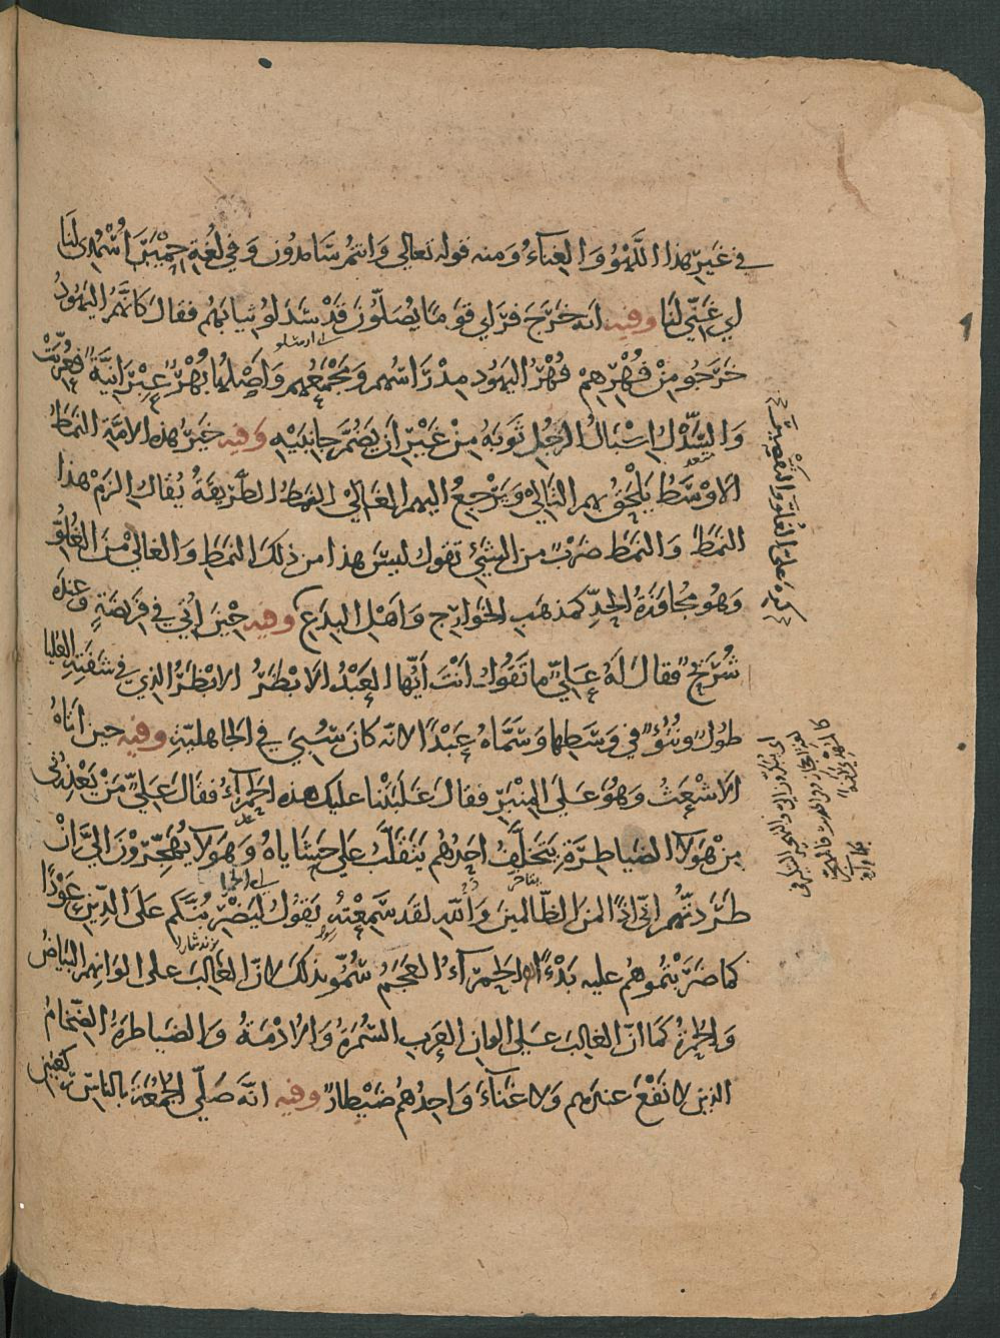 في غَيْرِ هذا اللَّهْوُ وَالغِنَآءُ وَمنه قوله تعالى وَانتم سَامدُون وَفي لُغَةِ حِمْيَرَ اسْمُدِى لنَا
اي غَنّي لَنَا وفيه انه خَرَجَ فرَاي قوَمًا يُصَلّونَ قَدْ سَدَلوُ ثيابَهُم فقالَ كَانَّهم اليَهودُ
اي ارسلو
خَرَجُو مِنْ فُهْرِهِمْ فُهْرُ اليَهُود مِدْرَاسُهم وَمَجْمَعُهم وَاصْلهَا بُهْرٌ عِبْرَانيَّةٌ فعُرِّبَتْ
وَالسَّدْلُ اسْبَالُ الرَجُلِ ثَوبَهُ مِنْ غَيْرِ اَن يَضُمَّ جانِبَيْهِ وَفِيه خَيرُ هذه الامَّةِ النمَطُ
الاوْسَطُ يَلْحَقُ بهم التَاليْ وَيَرْجِعُ اليهم الغَاليْ النمَطُ الطَّرِيقَةُ يُقَالُ الزَمْ هذا
النمَطَ وَالنمَط ضَربٌ من الشَئِ تقول ليسَ هذا من ذلكَ النمَطِ وَالغالي مِنَ الغُلُوِّ
وَهُو مُجَاوَزَةُ الحَدِّ كمَذهَبِ الخَوارِج وَاهْلِ البِدَعِ وفيه حْينَ اُتي في فَرِيضَةٍ وَعندَهُ
شُرَيحٌ فقالَ لَهُ عَليٌ ما تَقُولُ اَنْتَ اَيُّهَا العَبْدُ الاَبْظَرُ الابْظَرُ الذي في شَفَتِهِ العُليا
طُولٌ وَنُتُؤٌ في وَسَطِها وَسَمَّاهُ عَبْدًا لانّه كانَ سُبيَ في الجَاهليّةِ وفيه حين اتَاهُ
الاَشْعَثُ وَهُوَ عَلى المِنبَرِ فقالَ غَلبَتْنا عليكَ هذه الحَمرَآءُ فقالَ عَليٌ مَنْ يَعْذِرُني
مِنْ هَؤلآ الضَياطِرَةِ يَتَخَلّفُ اَحَدُهُم يَتَقَلّبُ على حَشَاياهُ وَهؤلآ يُهَجِّرُونَ اليَّ اَنْ
طَرَدتُّهم انّي اذًا لمنَ الظَّالمينَ وَاللهِ لقَد سَمِعْتُهُ يَقُولُ ليَضْرِبُنَّكم عَلى الدِّينِ عَوْدًا
كما ضَرَبْتُموهُم عليه بَدْءًا الحَمرَآءُ العَجَمُ سُمُّو بذلكَ لانّ الغالِبَ على الوَانِهم البَيَاضُ
وَالحُمرَةُ كمَا انّ الغالبَ عَلى الوانِ العَرَبِ السُّمْرَةُ وَالاُدْمَةُ وَالضَياطرَةُ الضّخَامُ
الذين لا نَفْعَ عندهم وَلا غَنَآءَ وَاحِدُهُم ضَيْطارٌ وفيه انّهُ صَلّى الجُمعَةَ بالناسِ
كرِهَ على الغُلوَّ وَالتَقصِيرَ